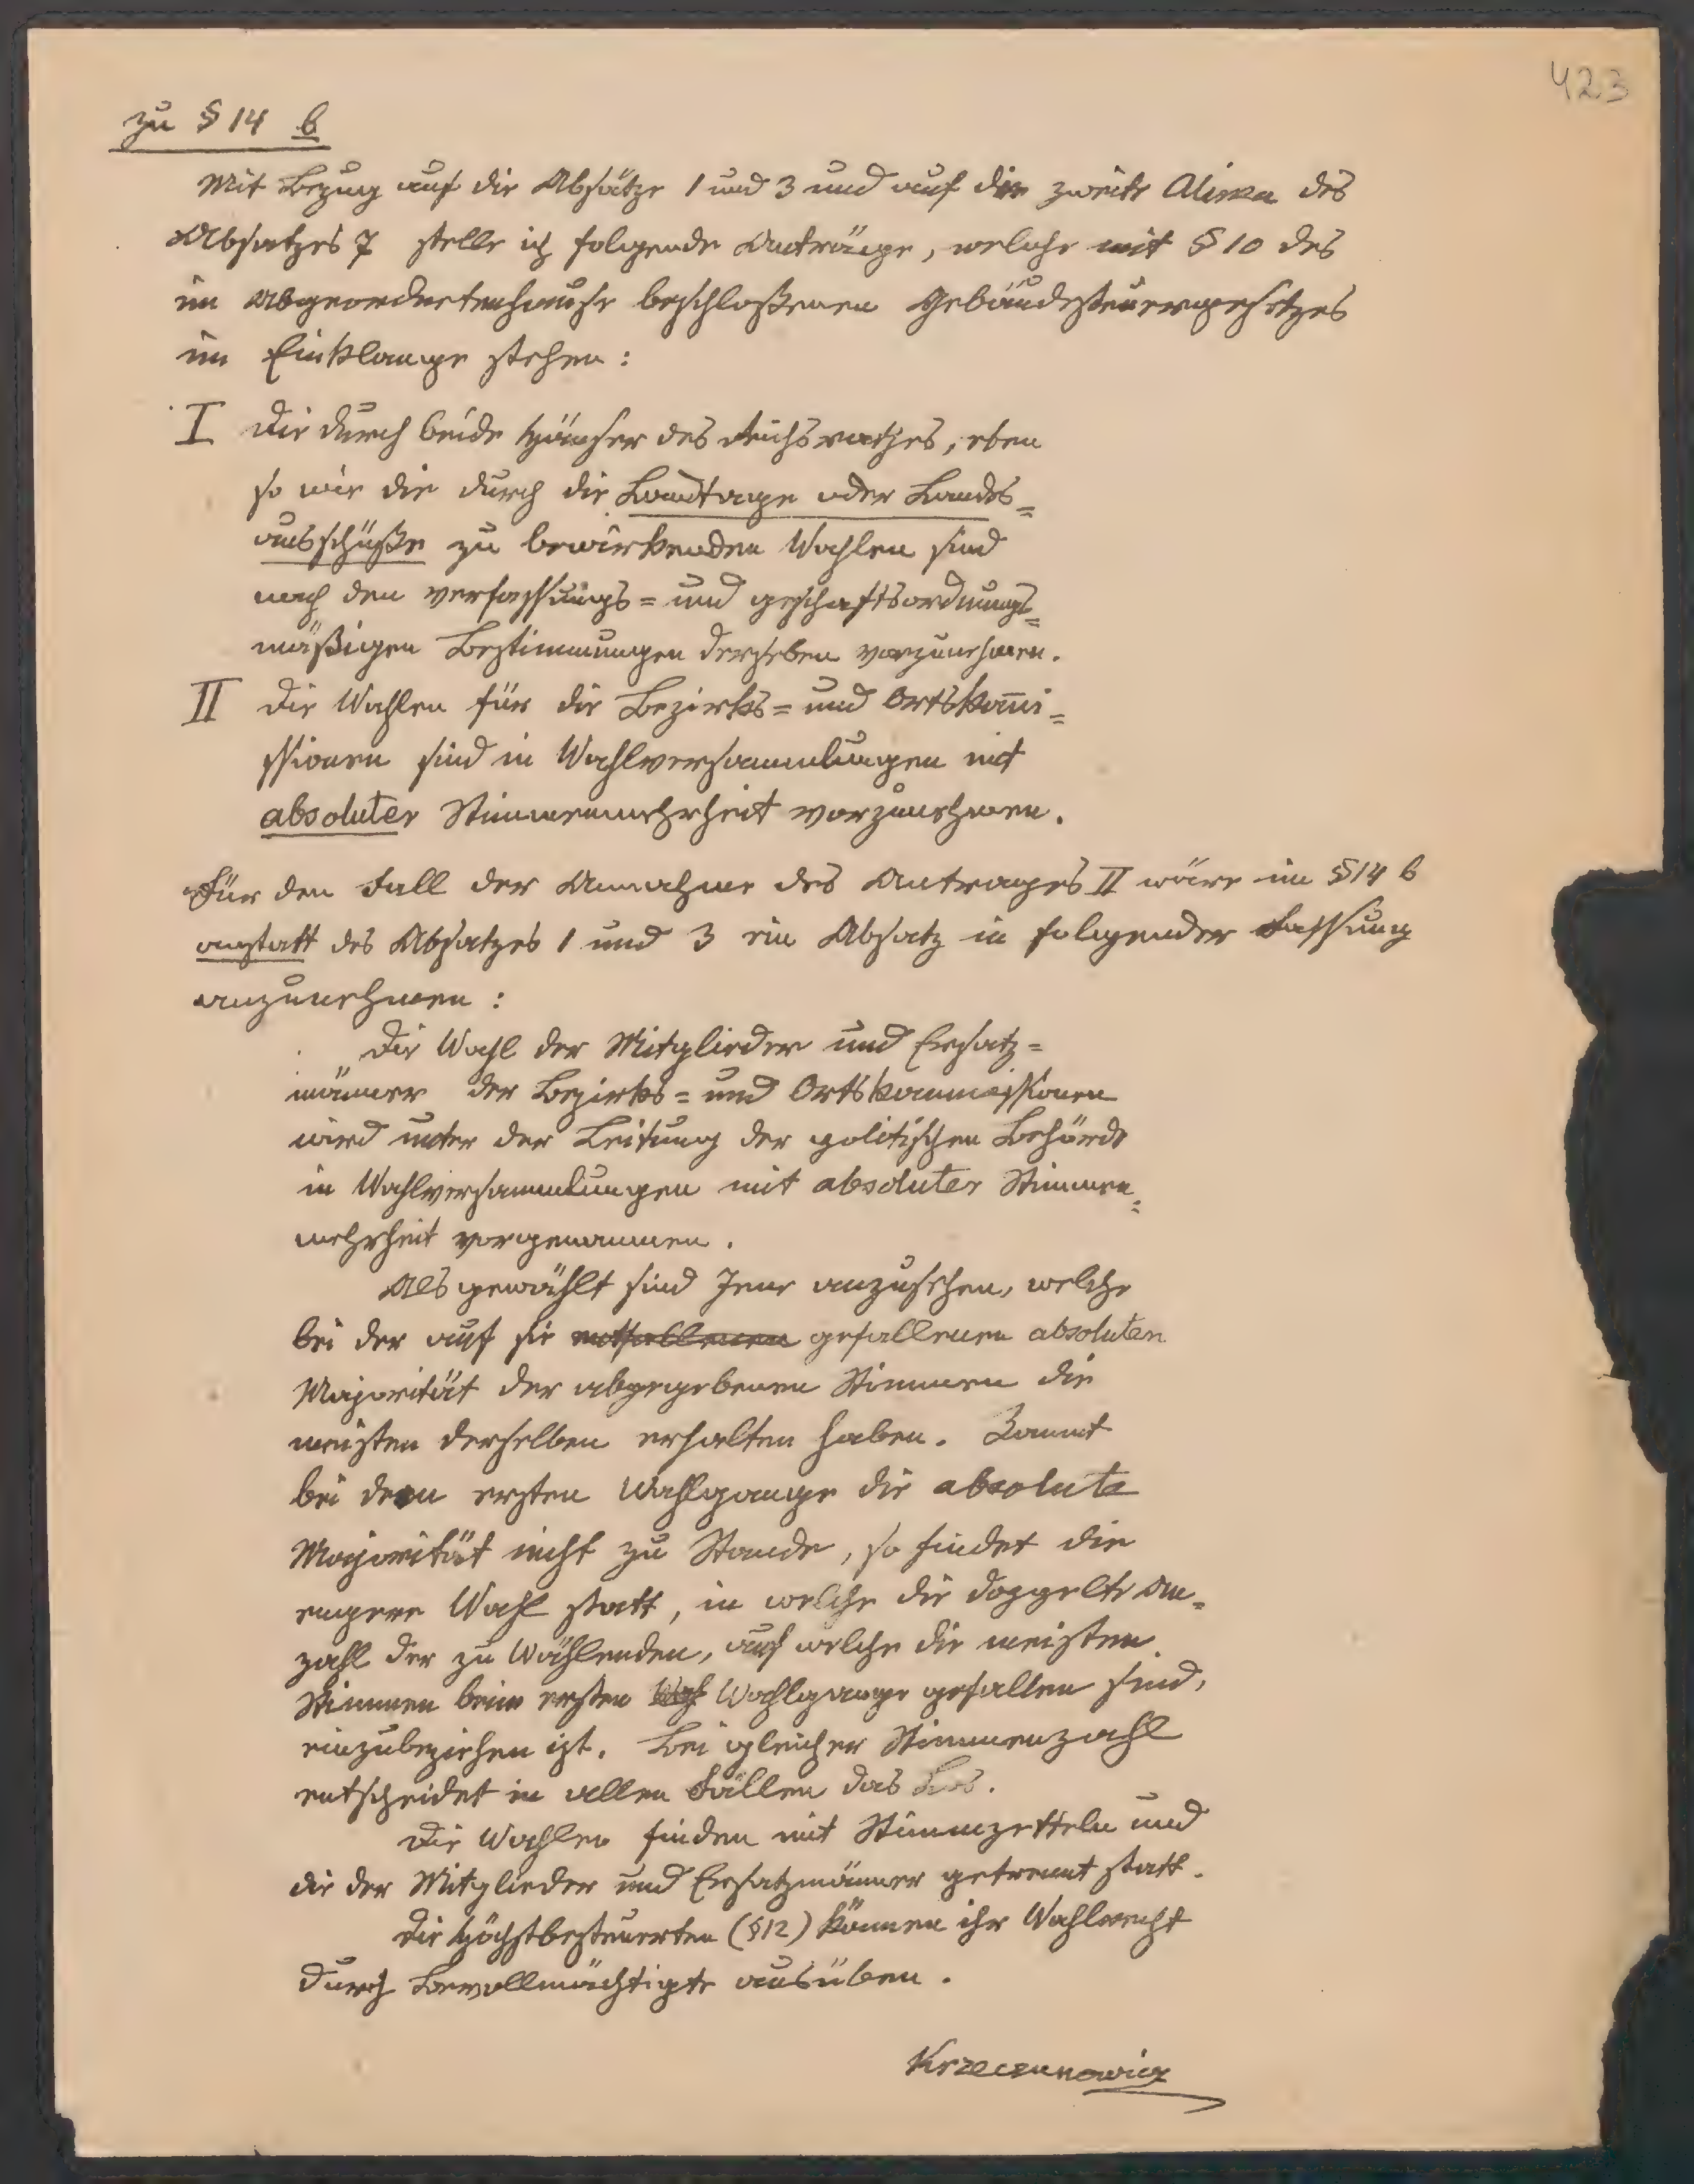 423
zu § 14 b
Mit Bezug auf die Absätze 1 und 3 und auf die zweite Alinea des
Absatzes 7 stelle ich folgende Anträge, welche mit § 10 des
im Abgeordnetenhause beschloßenen Gebäudesteuergesetzes
im Einklange stehen:
I Die durch beide Häuser des Reichsrathes, eben
so wie die durch die Landtage oder Landes=
ausschüße zu bewirkenden Wahlen sind
nach den verfassungs= und geschäftsordnungs=
mäßigen Bestimmungen derselben vorzunehmen.
II Die Wahlen für die Bezirks= und Ortskom̄i=
ssionen sind in Wahlversammlungen mit
absoluter Stimmenmehrheit vorzunehmen.
Für den Fall der Annahme des Antrages II wäre im § 14 b
anstatt des Absatzes 1 und 3 ein Absatz in folgender Fassung
anzunehmen:
„Die Wahl der Mitglieder und Ersatz=
männer der Bezirks= und Ortskommissionen
wird unter der Leitung der politischen Behörde
in Wahlversammlungen mit absoluter Stimmen=
mehrheit vorgenommen.
Als gewählt sind Jene anzusehen, welche
bei der auf sie entfallenen gefallenen absoluten
Majorität der abgegebenen Stimmen die
meisten derselben erhalten haben. Kommt
bei dem ersten Wahlgange die absolute
Majorität nicht zu Stande, so findet die
engere Wahl statt, in welche die doppelte An=
zahl der zu Wählenden, auf welche die meisten
Stimmen beim ersten Wah Wahlgange gefallen sind,
einzubeziehen ist. Bei gleicher Stimmenzahl
entscheidet in allen Fällen das Los.
Die Wahlen finden mit Stimmzetteln und
die der Mitglieder und Ersatzmänner getrennt statt.
Die Höchstbesteuerten (§ 12) können ihr Wahlrecht
durch Bevollmächtigte ausüben.
Krzeczunowicz